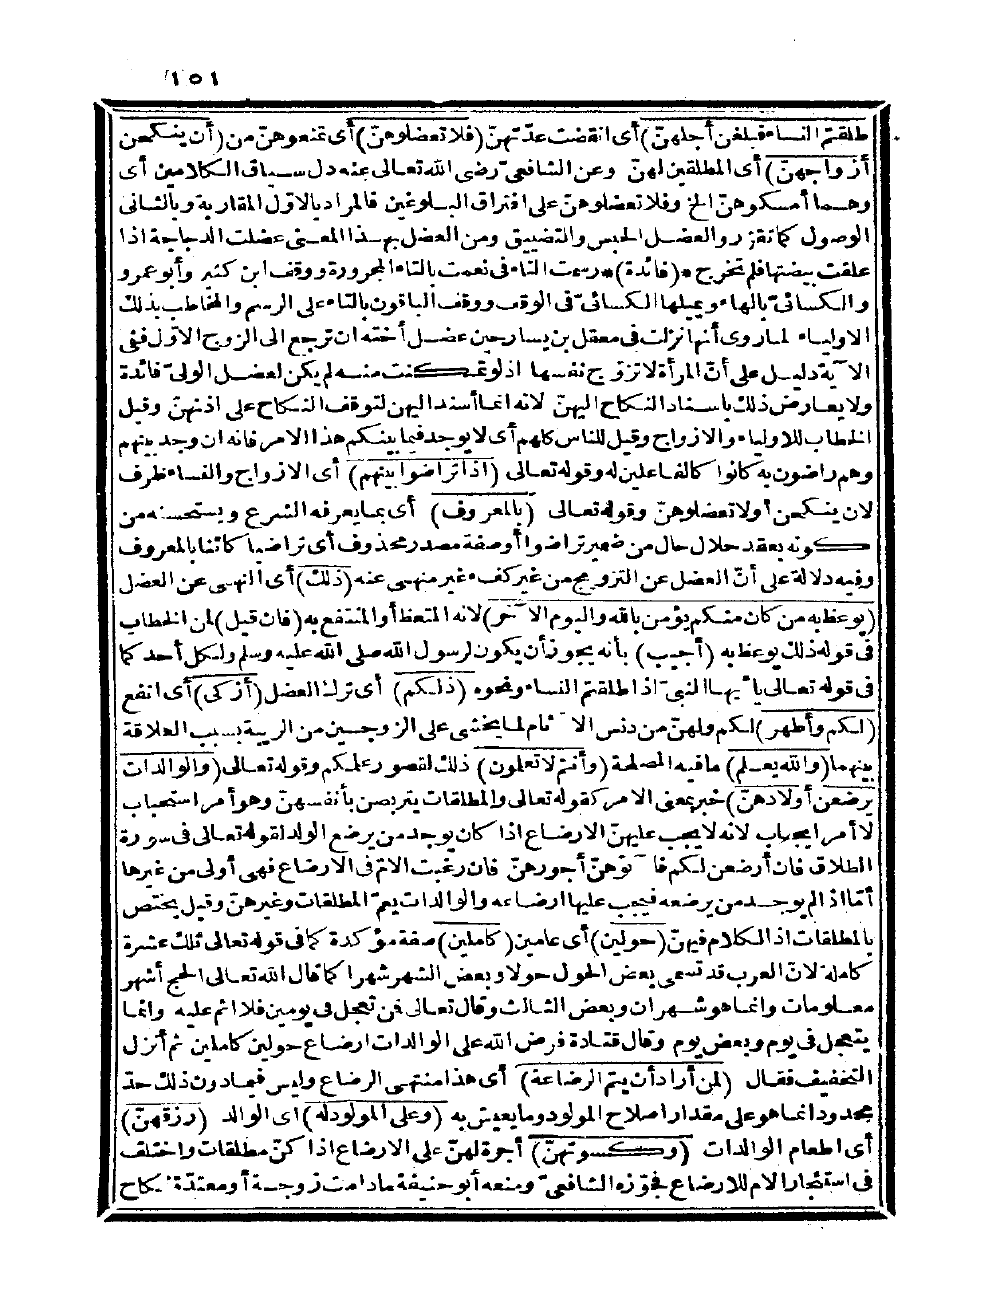 ١٥١
طلقتم النساء فبلغن أجلهنّ) أى انقضت عدّتهنّ (فلا تعضلوهنّ) أى تمنعوهنّ من (أن ينكحن
أزواجهنّ) أى المطلقين لهنّ وعن الشافعىّ رضى الله تعالى عنه دل سياق الكلامين أى
وهما أمسكوهنّ الخ وفلا تعضلوهنّ على افتراق البلوغين فالمراد بالاول المقاربة وبالثانى
الوصول كما تقرّر والعضل الحبس والتضييق ومن العضل بهذا المعنى عضلت الدجاجة اذا
علقت بيضتها فلم تخرج *(فائدة)* رسمت التاء فى نعمت بالتاء المجرورة ووقف ابن كثير وأبو عمرو
والكسائىّ بالهاء ويميلها الكسائىّ فى الوقف ووقف الباقون بالتاء على الرسم والمخاطب بذلك
الاولياء لما روى أنها نزلت فى معقل بن يسار حين عضل أخته ان ترجع الى الزوج الاوّل ففى
الآية دليل على أنّ المرأة لا تزوّج نفسها اذ لو تمكنت منه لم يكن لعضل الولىّ فائدة
ولا يعارض ذلك باسناد النكاح اليهنّ لانه انما أسند اليهن لتوقف النكاح على اذنهنّ وقيل
الخطاب للاولياء والازواج وقيل للناس كلهم أى لا يوجد فيما بينكم هذا الامر فانه ان وجد بينهم
وهم راضون به كانوا كالفاعلين له وقوله تعالى (اذا تراضوا بينهم) أى الازواج والنساء ظرف
لان ينكحن أو لا تعضلوهنّ وقوله تعالى (بالمعروف) أى بما يعرفه الشرع ويستحسنه من
كونه بعقد حلال حال من ضمير تراضوا أو صفة مصدر محذوف أى تراضيا كائنا بالمعروف
وفيه دلالة على أنّ العضل عن التزويج من غير كفء غير منهى عنه (ذلك) أى النهى عن العضل
(يوعظ به من كان منكم يؤمن بالله واليوم الآخر) لانه المتعظ أو المنتفع به (فان قيل) لمن الخطاب
فى قوله ذلك يوعظ به (أجيب) بأنه يجوز أن يكون لرسول الله صلى الله عليه وسلم ولكل أحد كما
فى قوله تعالى يا أيها النبىّ اذا طلقتم النساء ونحوه (ذلكم) أى ترك العضل (أزكى) أى انفع
(لكم وأطهر) لكم ولهنّ من دنس الآثام لما يخشى على الزوجين من الريبة بسبب العلاقة
بينهما (والله يعلم) ما فيه المصلحة (وأنتم لا تعلمون) ذلك لقصور علمكم وقوله تعالى (والوالدات
يرضعن أولادهنّ) خبر بمعنى الامر كقوله تعالى والمطلقات يتربصن بأنفسهنّ وهو أمر استحباب
لا أمر ايجاب لانه لا يجب عليهنّ الارضاع اذا كان يوجد من يرضع الولد لقوله تعالى فى سورة
الطلاق فان أرضعن لكم فآتوهنّ أجورهنّ فان رغبت الامّ فى الارضاع فهى أولى من غيرها
أمّا اذا لم يوجد من يرضعه فيجب عليها ارضاعه والوالدات يعمّ المطلقات وغيرهنّ وقيل يختص
بالمطلقات اذ الكلام فيهنّ (حولين) أى عامين (كاملين) صفة مؤكدة كما فى قوله تعالى تلك عشرة
كاملة لانّ العرب قد تسمى بعض الحول حولا وبعض الشهر شهرا كما قال الله تعالى الحج أشهر
معلومات وانما هو شهران وبعض الثالث وقال تعالى فمن تعجل فى يومين فلا اثم عليه وانما
يتعجل فى يوم وبعض يوم وقال قتادة فرض الله على الوالدات ارضاع حولين كاملين ثم أنزل
التخفيف فقال (لمن أراد أن يتم الرضاعة) أى هذا منتهى الرضاع وليس فيما دون ذلك حدّ
محدود انما هو على مقدار اصلاح المولود وما يعيش به (وعلى المولود له) اى الوالد (رزقهنّ)
أى اطعام الوالدات (وكسوتهنّ) أجرة لهنّ على الارضاع اذا كنّ مطلقات واختلف
فى استئجار الام للارضاع فجوّزه الشافعىّ ومنعه أبو حنيفة ما دامت زوجة أو معتدّة نكاح